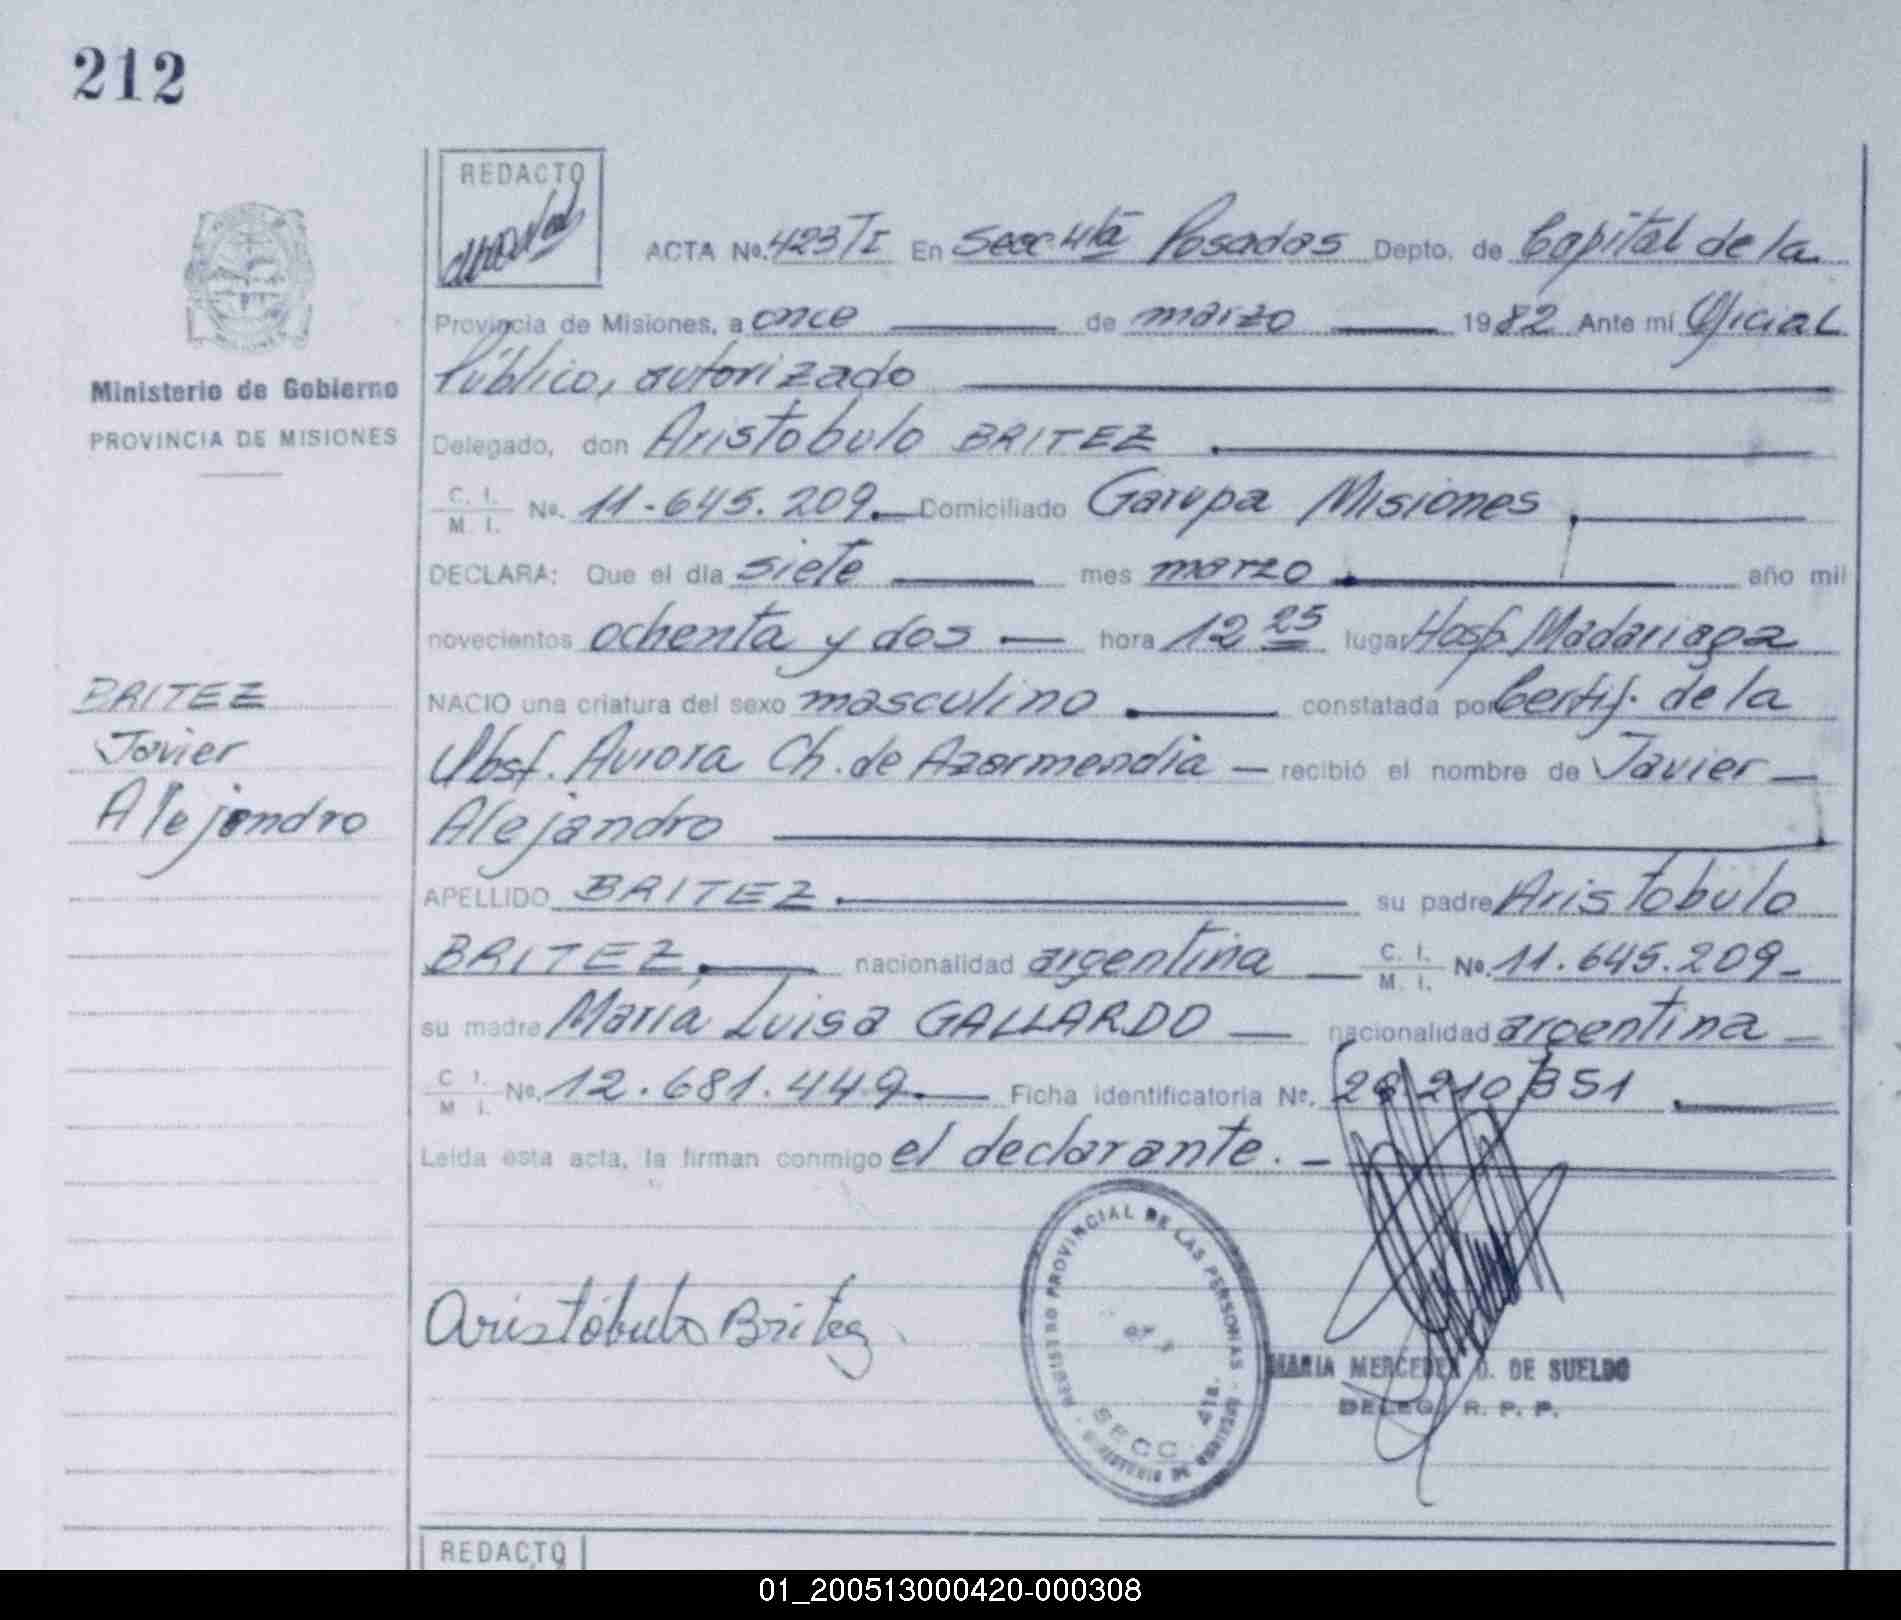 212
REDACTO
ACTA Nº. 423/I En Secc 4ta Posadas Depto. de Capital de la
Provincia de Misiones, a once de marzo 1982 Ante mí Oficial
Público, autorizado
Ministerio de Gobierno
PROVINCIA DE MISIONES
Delegado, don Aristobulo BRITEZ
C. I.
M. I.
Nº. 11.645.209. Domiciliado Garupa Misiones
DECLARA: Que el día siete mes marzo año mil
novecientos ochenta y dos hora 12 25 lugar Hosp. Madariaga
BRITEZ
Javier
Alejandro
NACIO una criatura del sexo masculino constatada por Certif. de la
Obst. Aurora Ch. de Azarmendia recibió el nombre de Javier
Alejandro
APELLIDO BRITEZ su padre Aristobulo
BRITEZ nacionalidad argentina C. I.
M. I. Nº. 11.645.209
su madre María Luisa GALLARDO nacionalidad argentina
C. I.
M. I. Nº. 12.681.449 Ficha identificatoria Nº. 210 351
Leída esta acta, la firman conmigo el declarante.
Aristóbulo Britez
REGISTRO PROVINCIAL DE LAS PERSONAS
SECC. 4ta.
MARIA MERCEDES D. DE SUELDO
DELEG. R. P. P.
REDACTO
01_200513000420-000308